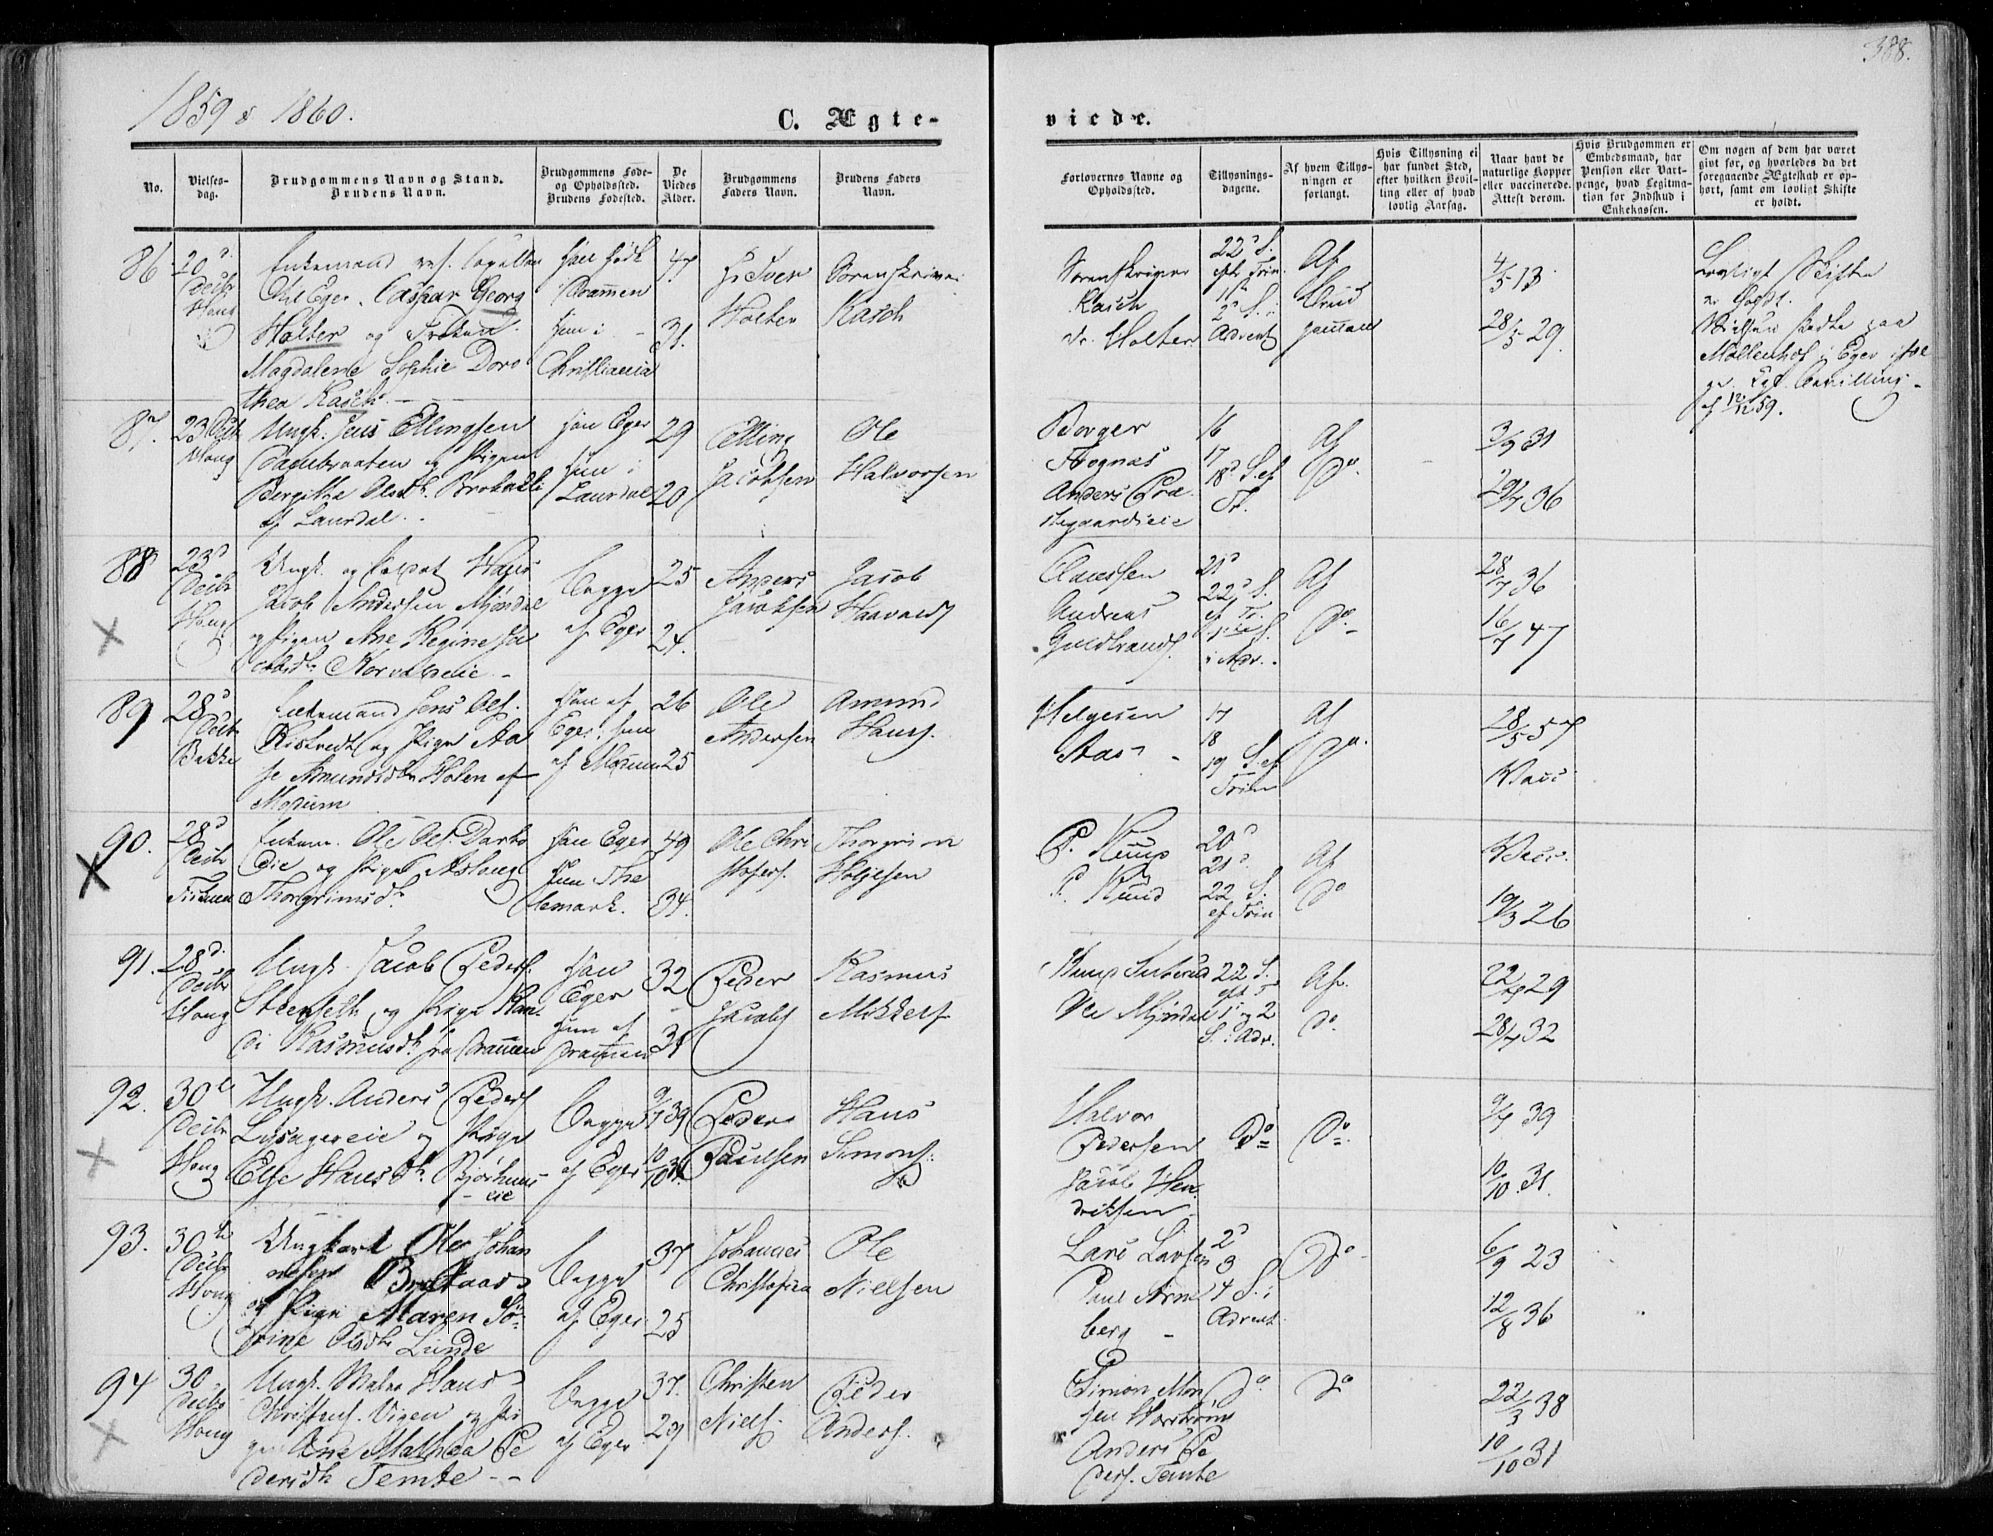 388.
1859 & 1860.
C. Ægte-
viede.
No.
Vielses-
dag.
Brudgommens Navn og Stand.
Brudens Navn.
Brudgommens Føde-
og Opholdssted.
Brudens Fødested.
De
Viedes
Alder.
Brudgommens
Faders Navn.
Brudens Faders
Navn.
Forlovernes Navne og
Opholdssted.
Tillysnings-
dagene.
Af hvem Tillys-
ningen er
forlangt.
Hvis Tillysning ei
har fundet Sted,
efter hvilken Bevil-
ling eller af hvad
lovlig Aarsag.
Naar havt de
naturlige Kopper
eller vaccinerede.
Attest derom.
Hvis Brudgommen er
Embedsmand, har
Pension eller Vart-
penge, hvad Legitima-
tion for Indskud i
Enkekassen.
Om nogen af dem har været
givt før, og hvorledes da det
foregaaende Ægteskab er op-
hørt, samt om lovligt Skifte
er holdt.
86
20
Decbr
Enkemand res. Capellan
Eger, Caspar Georg
Holter og Frøken
Magdalene Sophie Doro
thea Rasch.
Han født
Drammen
Hun i
Christiania
47
31.
Iver
Holter
Sorenskriver
Rasch
Sorenskriver
Rasch
Holter
22 S.
eft. Trin.
1
2 S. i
Advent
Af
4/5 13
28/5 29.
Lovligt Skifte
er holdt.
Vielsen skedte paa
Møllenhof i Eger
12/12 59.
87.
23 Decbr
Houg
Ungk. Jens Ellingsen
og Pigen
Bergitte Olsdt. Brobakke
af Laurdal.
Han Eger
Hun i
Laurdal
29
20
Elling
Jacobsen
Ole
Halvorsen
Borger
Fognæs
Anders Præ
stegaardseie
16
17
18 S. ef
Tr.
Af
Do.
3/9 31
29/7 36
88
23
Decbr
Houg
Ungk. og Soldat Hans
Jacob Andersen Mjøndal
og Pigen Ane Regine Ja
cobsdt.
begge
af Eger
25
24.
Anders
Jacobsen
Jacob
Haavalds
Claussen
Andreas
Guldbrands.
21
22 S.
ef Tr.
1 S.
i Adv.
Af
Do
28/7 36
16/7 47
89
28
Decbr
Bakke
Enkemand Jens Ols.
og Pige Aa
se Amundsdtr Holen af
Modum
Han af
Eger, hun
af Modum
26
25
Ole
Andersen
Amund
Hans.
Helgesen
Aas
17
18
19 S. ef
Trin
Af
Do.
28/5 57
Vacc.
90.
28
Decbr
Fiskum
Enkem. Ole Ols. Darbo
eie og Pige Aslaug
Thorgrimsdt.
Han Eger
Hun The
lemark.
49
34.
Ole Chri
stofers.
Thorgrim
Halgesen
P. Knud
P. Knud
20
21
22 S.
ef Trin
Af
do
Vacc.
19/3 26
91.
28 d.
Decbr
Houg
Ungk. Jacob Peders.
Steenseth og Pige Kan
di Rasmusdt. fra Drammen
Han
Eger
Hun af
Drammen
32
31
Peder
Jacobs
Rasmus
Mikkels
22 S.
eft T
1 og 2
S. i Adv.
Af.
do.
22/4 29
28/7 32
92.
30
Decbr
Houg
Ungk. Anders Peders
Lysagereie og Pige
Else Hansdt. Bjørkenes
eie
begge
af Eger
9/7 39
10/10 31.
Peder
Paulsen
Hans
Simons.
Halvor
Pedersen
Jacob Hen
driksen
Do
Do.
9/7 39
10/10. 31.
93.
30
Decbr
Houg
Ungkarl Ole Johan
nesen Brekaas
og Pige Maren So
phine Olsdtr Lunde
begge
af Eger
37
25
Johannes
Christofersen
Ole
Nielsen
Lars Larsen
Paul Arne
berg
2
3
4 S. i
Advent.
Do
6/9 23
12/8 36
94
30
Decbr
Houg
Ungk. Maler Hans
Christens. Vigen og Pi
gen Ane Mathea Pe
dersdt. Temte
begge
af Eger
37.
29
Christen
Niels.
Peder
Anders.
Simon Mon
sen
Anders Pe
ders. Temte
Do.
Do
22/3 38
10/10 31